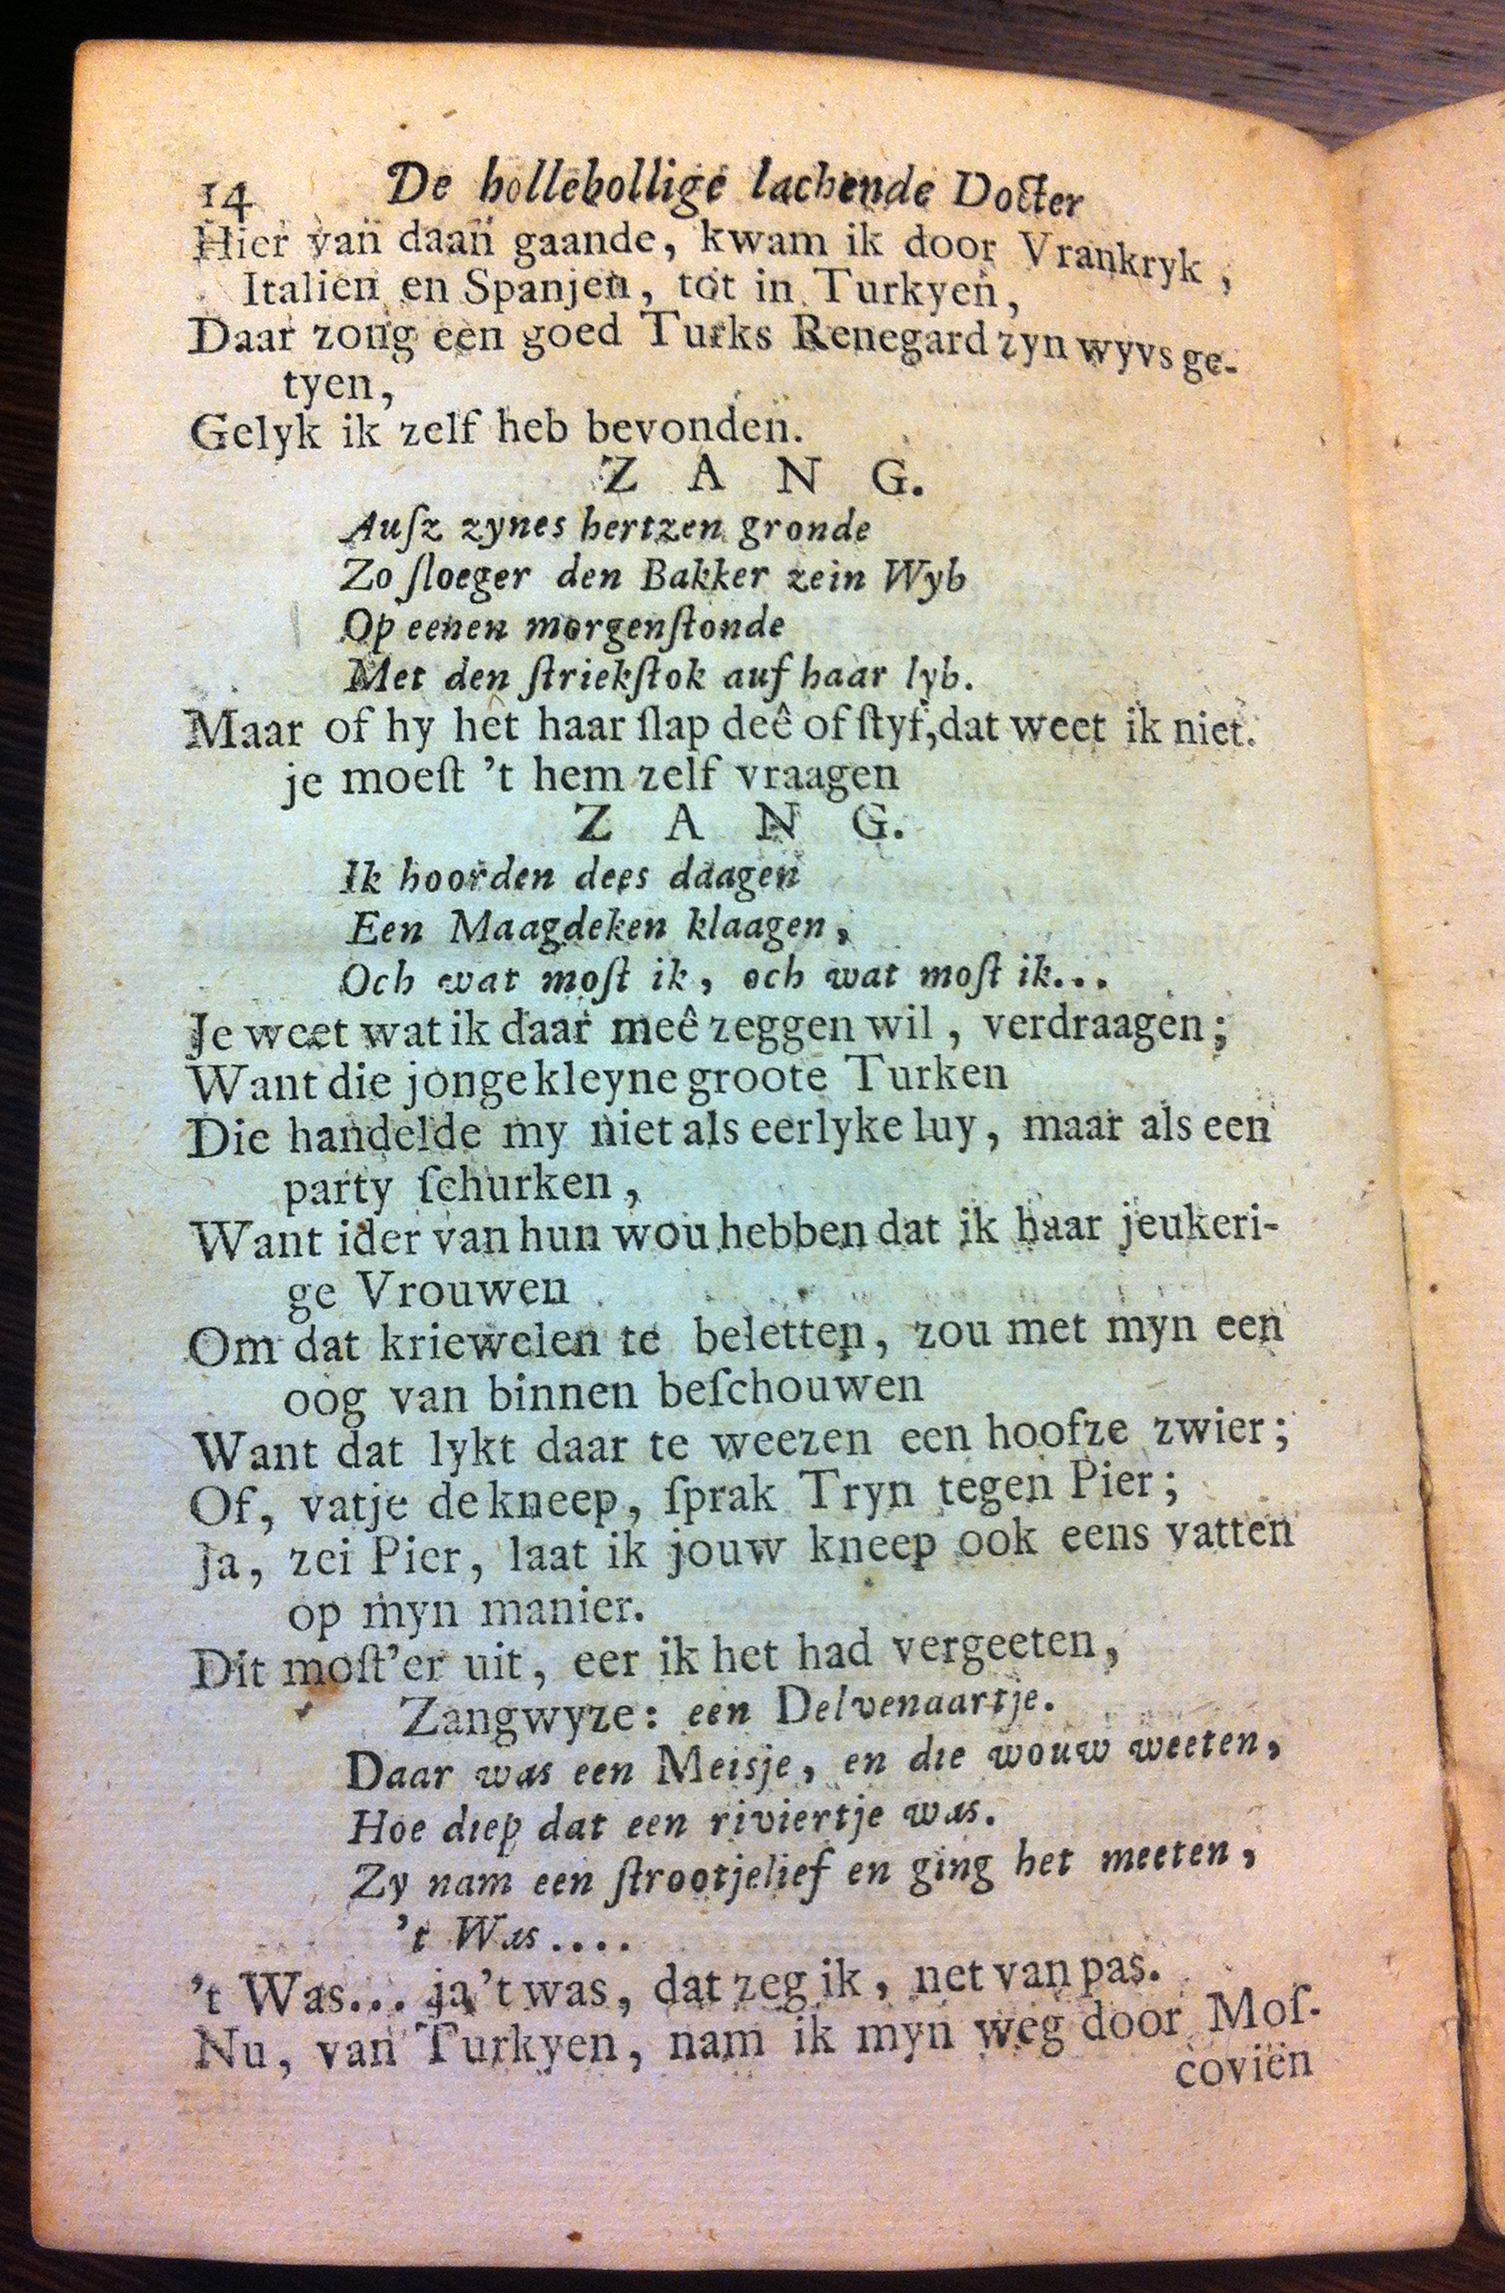 14 De hollebollige lachende Docter
Hier van daan gaande, kwam ik door Vrankryk,
Italien en Spanjen, tot in Turkyen,
Daar zong een goed Turks Renegard zyn wyvs ge-
tyen,
Gelyk ik zelf heb bevonden.
Z A N G.
Auſz zynes hertzen gronde
Zo ſloeger den Bakker zein Wyb
Op eenen morgenſtonde
Met den ſtriekſtok auf haar lyb.
Maar of hy het haar ſlap deê of ſtyf, dat weet ik niet.
je moeſt 't hem zelf vraagen
Z A N G.
Ik hoorden dees daagen
Een Maagdeken klaagen,
Och wat moſt ik, och wat moſt ik...
Je weet wat ik daar meê zeggen wil, verdraagen;
Want die jonge kleyne groote Turken
Die handelde my niet als eerlyke luy, maar als een
party ſchurken,
Want ider van hun wou hebben dat ik haar jeukeri-
ge Vrouwen
Om dat kriewelen te beletten, zou met myn een
oog van binnen beſchouwen
Want dat lykt daar te weezen een hoofze zwier;
Of, vatje de kneep, ſprak Tryn tegen Pier;
Ja, zei Pier, laat ik jouw kneep ook eens vatten
op myn manier.
Dit moſt'er uit, eer ik het had vergeeten,
Zangwyze: een Delvenaartje.
Daar was een Meisje, en die wouw weeten,
Hoe diep dat een riviertje was.
Zy nam een ſtrootjelief en ging het meeten,
't Was....
't Was... ja 't was, dat zeg ik, net van pas.
Nu, van Turkyen, nam ik myn weg door Moſ-
coviën